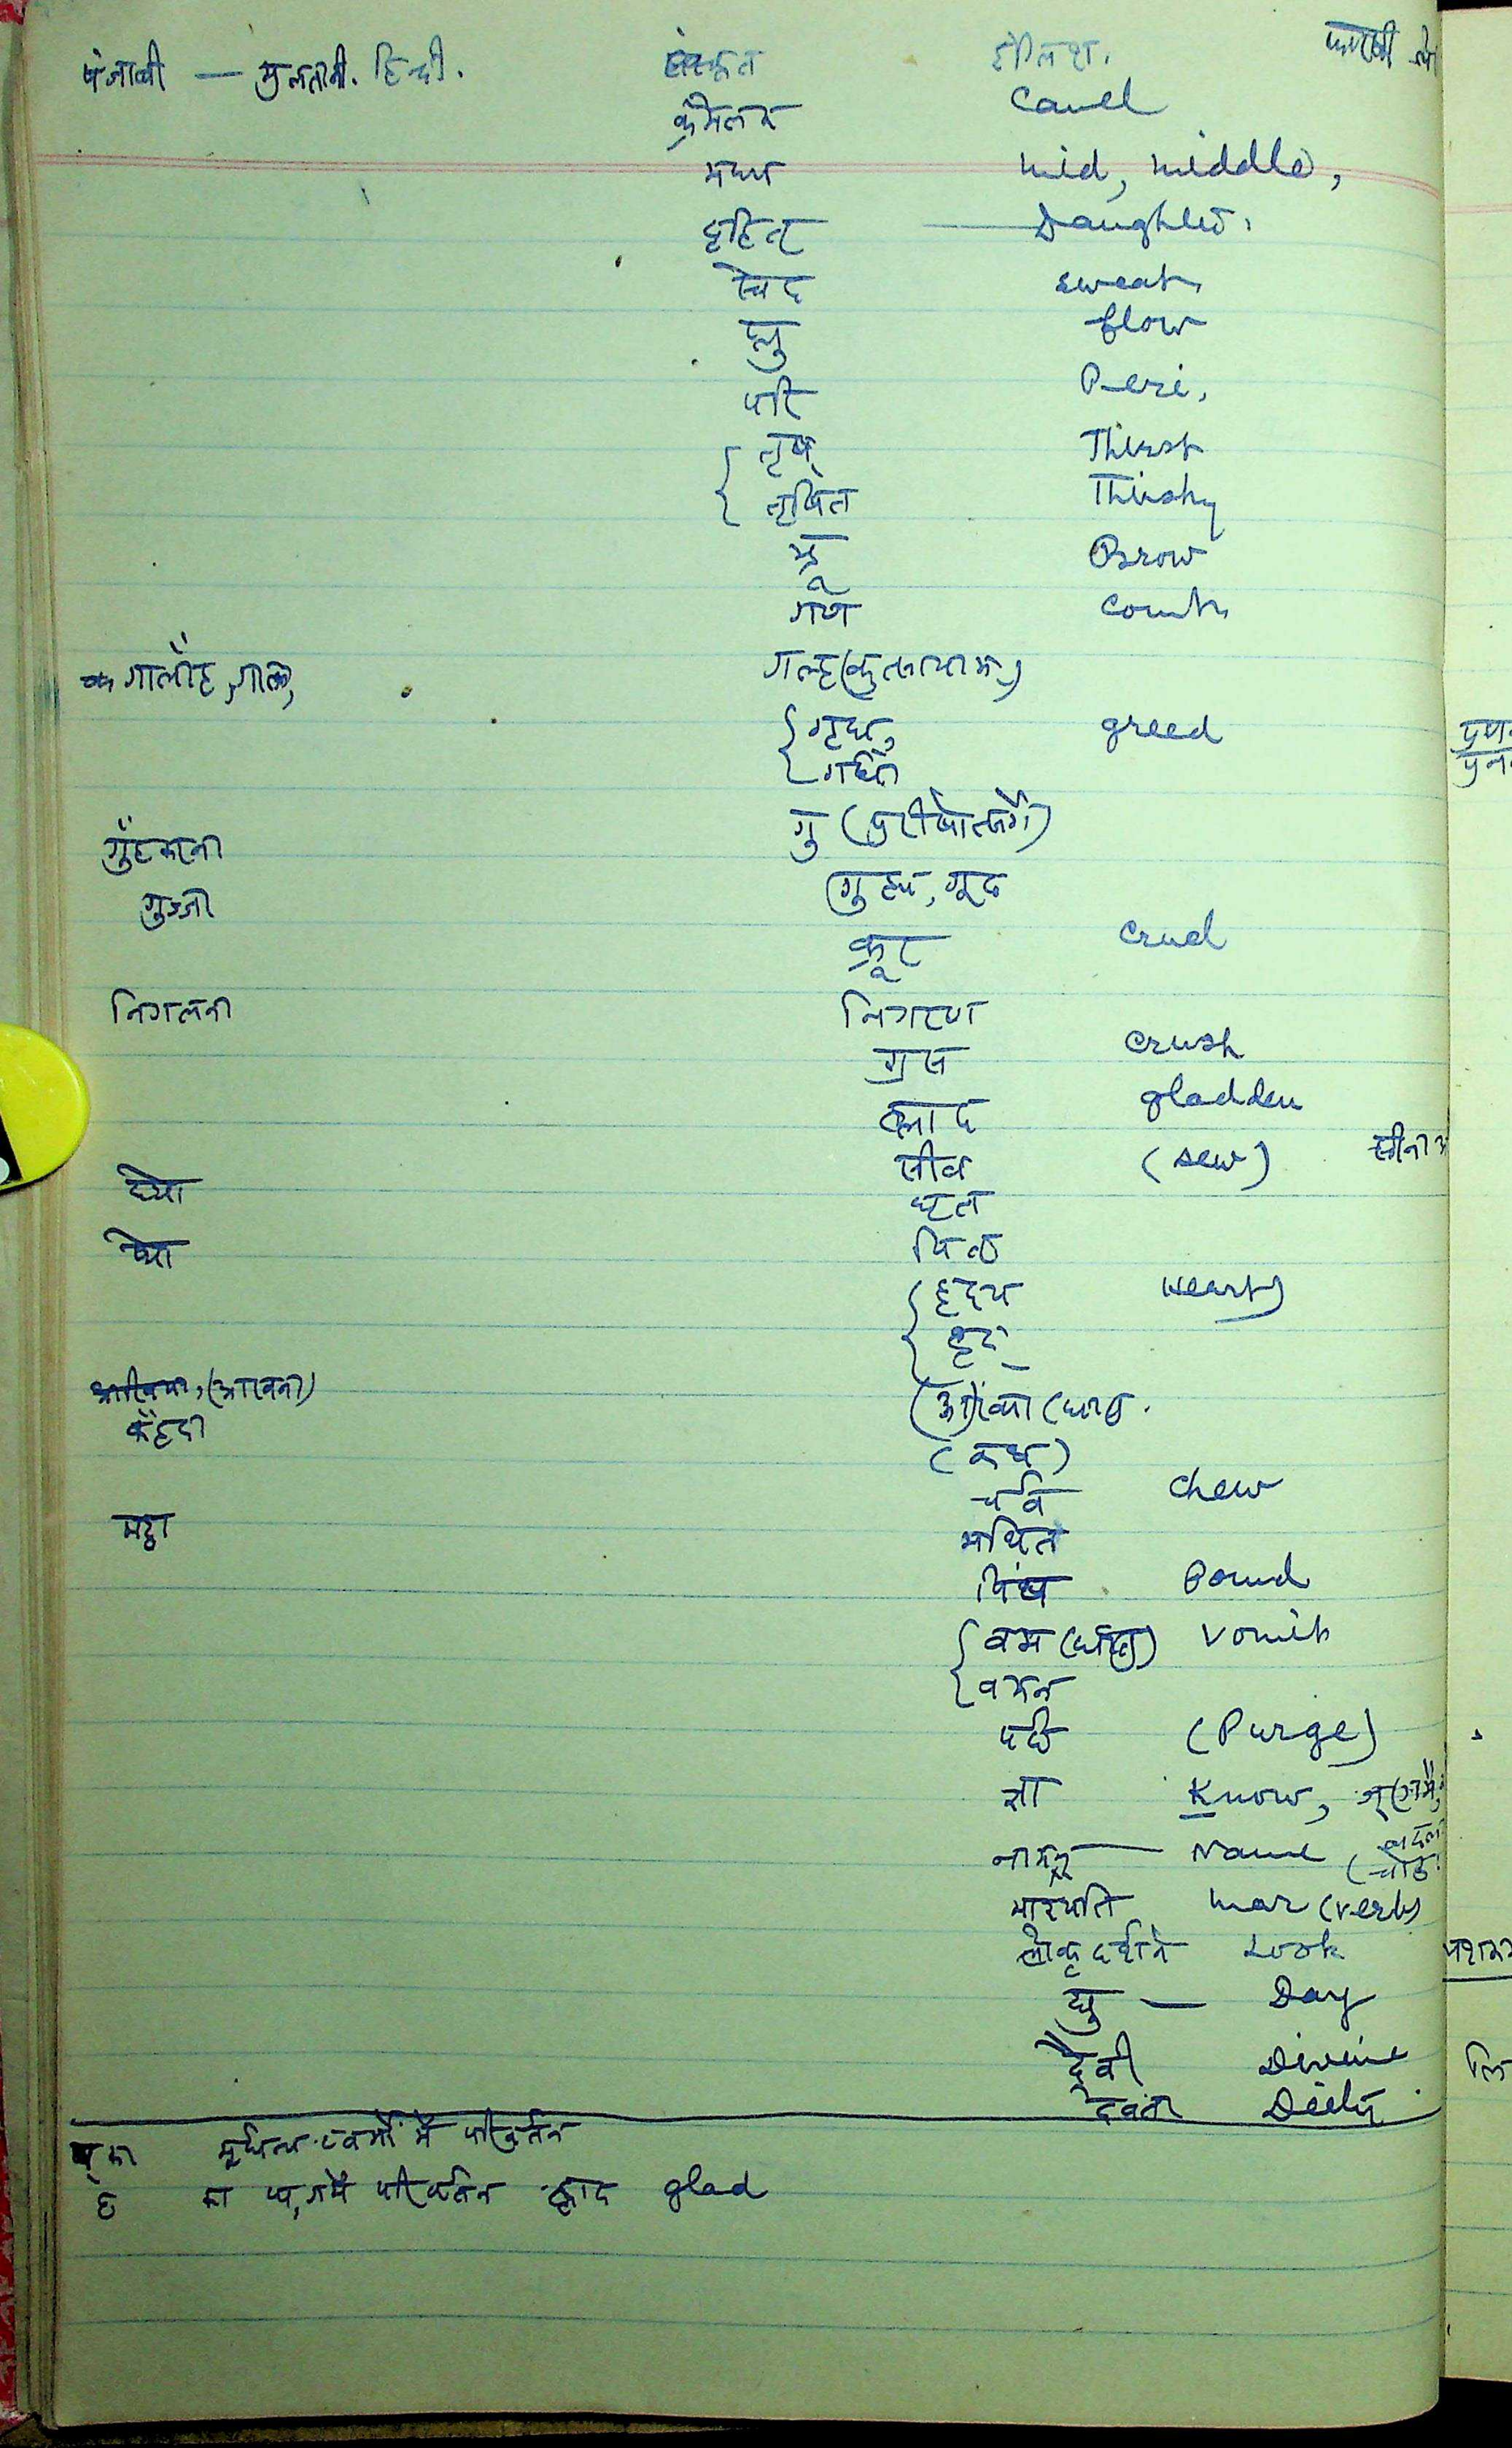 पंजाबी — मुलतानी. हिन्दी. संस्कृत इंगलिश. फारसी
क्रमेलक Camel
मध्य mid, middle,
दुहितृ — Daughter.
स्वेद sweat
प्लु flow
परि Peri,
तृष् Thirst
तृषित Thirsty
भ्रू Brow
गण count
गालीह, गाल, गल्ह (कुत्सायाम्)
गृध, greed
गर्धन
गु (पुरीषोत्सर्गे)
गुंहकना
गुह्य, गूढ
गुज्जी
क्रूर cruel
निगलना निगरण
ग्रस crush
ह्लाद gladden
सीव (sew) सीना
घ्यो घृत
प्यो पितृ
हृदय Heart
हृद्
(आखना) (आ)ख्या (धातु.
कैंहदा (कथ)
चर्व chew
मट्ठा मथित
पिंष Pound
वम (धातु) vomit
वमन
(Purge)
ज्ञा Know,
नामन् — Name
मारयति mar (verb)
लोकृ दर्शने Look
द्यु — Day
दैवी Divine
देवता Deity
मूर्धन्य टवर्गों में परिवर्तन
ह का घ, ग में परिवर्तन ह्लाद glad